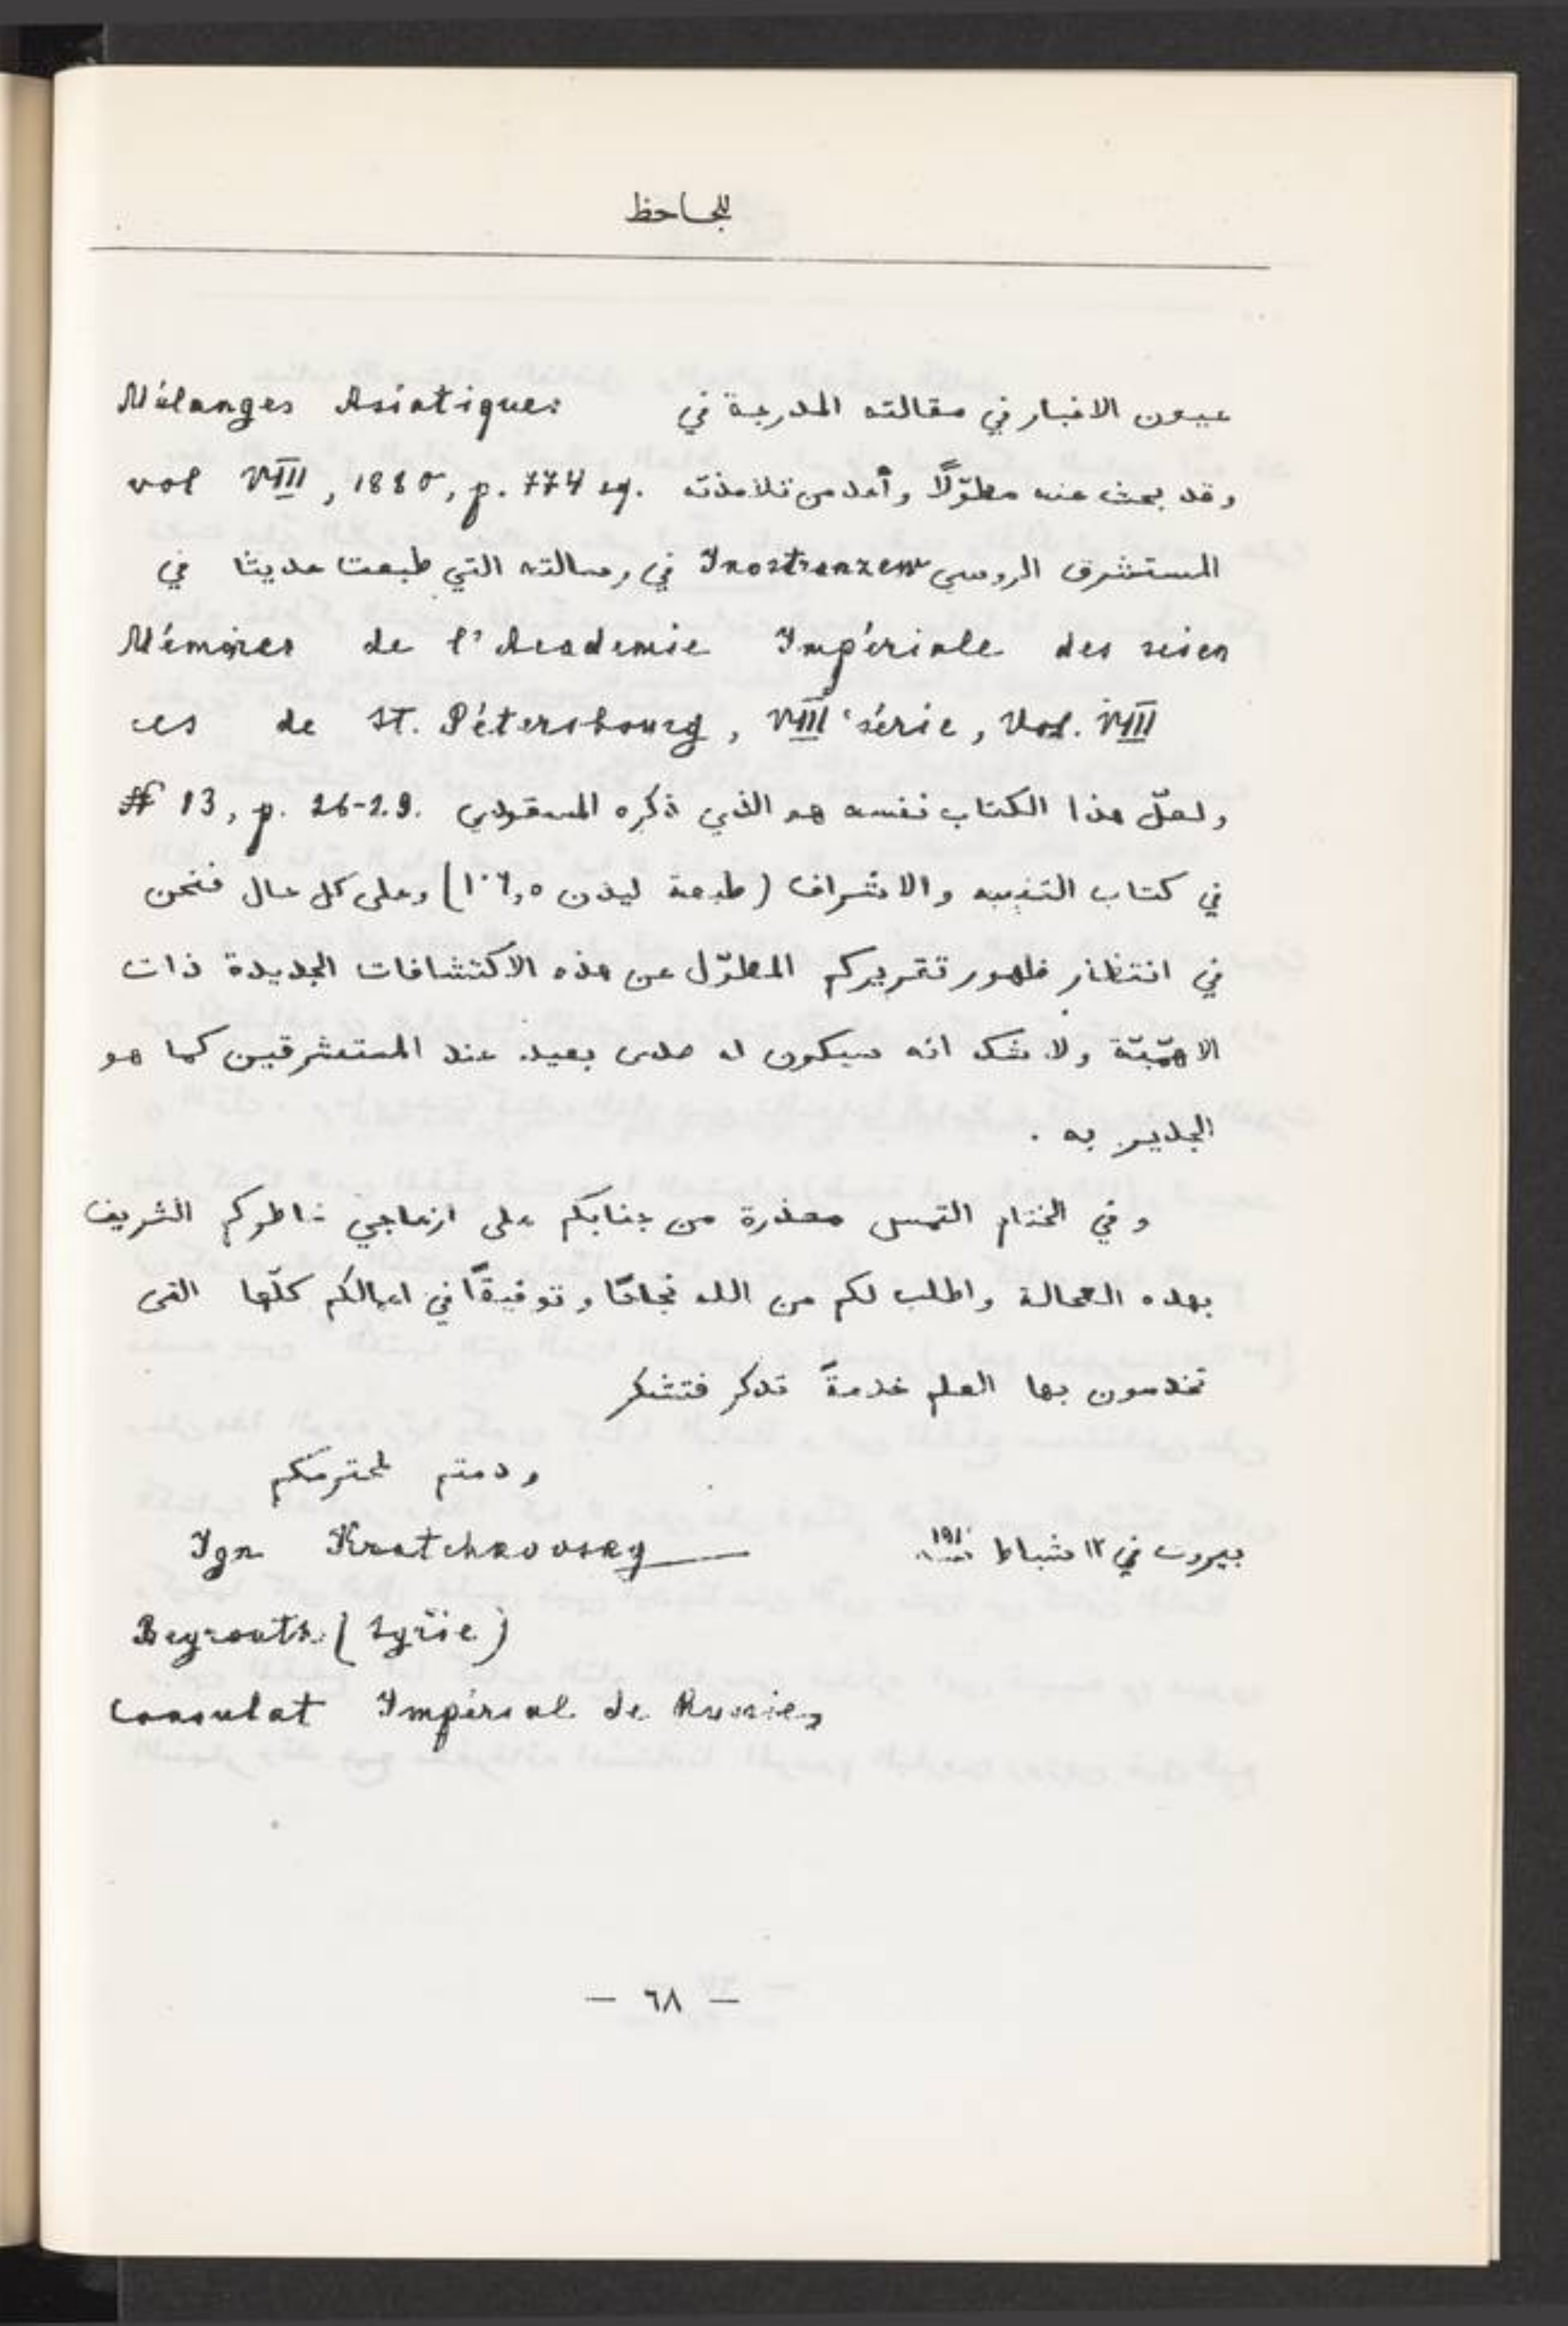 للجاحظ
عيون الاخبار في مقالته المدرجة في Mélanges Asiatiques
vol VIII, 1880, p. 774 sq. وقد بحث عنه مطوّلًا وأحد من تلامذته
المستشرق الروسي Inostranzew في رسالته التي طبعت حديثا في
Mémoires de l'Academie Impériale des scien
ces de St. Pétersbourg, VIII série, Vol. VIII
# 13, p. 26-29. ولعلّ هذا الكتاب نفسه هو الذي ذكره المسعودي
في كتاب التنبيه والاشراف (طبعة ليدن) وعلى كل حال فنحن
في انتظار ظهور تقريركم المطوّل عن هذه الاكتشافات الجديدة ذات
الاهمّيّة ولا شك انه سيكون له صدى بعيد عند المستشرقين كما هو
الجدير به .
وفي الختام التمس معذرة من جنابكم على ازعاجي خاطركم الشريف
بهذه العجالة واطلب لكم من الله نجاحًا وتوفيقًا في اعمالكم كلّها التى
تخدمون بها العلم خدمةً تذكر فتشكر
ودمتم لمحترمكم
بيروت في ١٢ شباط سنة ١٩١٠
Ign Kratchkovsky
Beyrouth (Syrie)
Consulat Impérial de Russie
— ٦٨ —